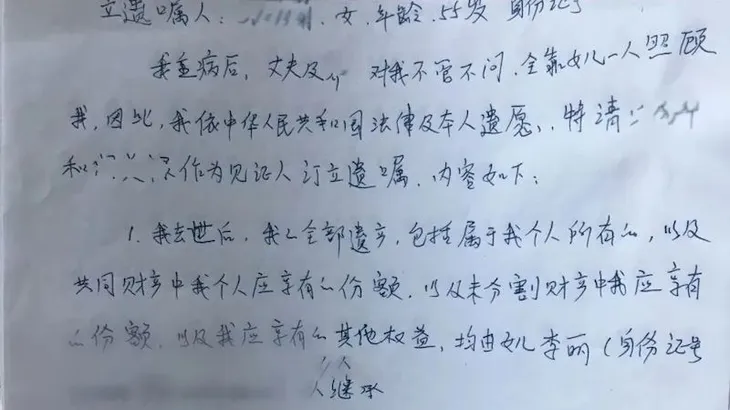 立遗嘱人：女.年龄.55岁 身份证号
我重病后，丈夫及 对我不管不问.全靠女儿一人照顾
我，因此，我依中华人民共和国法律及本人遗愿，特请
和 作为见证人订立遗嘱.内容如下：
1.我去世后，我的全部遗产，包括属于我个人所有的，以及
共同财产中我个人应享有的份额.以及未分割财产中我应享有
的份额.以及我应享有的其他权益，均由女儿李丽（身份证号
人继承